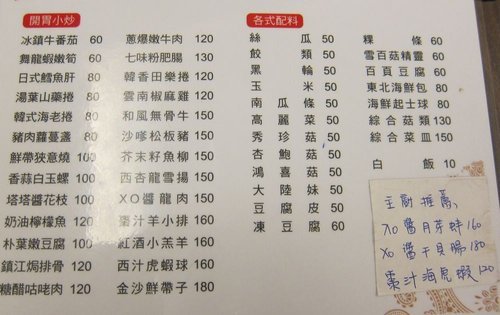 開胃小炒
冰鎮牛番茄 60
舞龍蝦嫩筍 60
日式鱈魚肝 80
湯葉山藥捲 80
韓式海老捲 80
豬肉蘿蔓盞 80
鮮帶狹意燒 100
香蒜白玉螺 100
塔塔醬花枝 100
奶油檸檬魚 100
朴葉嫩豆腐 100
鎮江焗排骨 100
糖醋咕咾肉 100
蔥爆嫩牛肉 120
七味粉肥腸 130
韓香田樂捲 120
雲南椒麻雞 120
和風無骨牛 150
沙嗲松板豬 150
芥末籽魚柳 150
西杏龍雪揚 150
XO醬龍肉 150
棗汁羊小排 160
紅酒小羔羊 160
西汁虎蝦球 160
金沙鮮帶子 180
各式配料
絲瓜 50
餃類 50
黑輪 50
玉米 50
南瓜條 50
高麗菜 50
秀珍菇 50
杏鮑菇 50
鴻喜菇 50
大陸妹 50
豆腐皮 50
凍豆腐 60
粿條 60
雪百菇精靈 60
百頁豆腐 60
東北海鮮包 80
海鮮起士球 80
綜合菇類 130
綜合菜皿 150
白飯 10
主廚推薦、
XO醬月芽蚌 160
XO醬干貝腸 180
棗汁海虎蝦 120